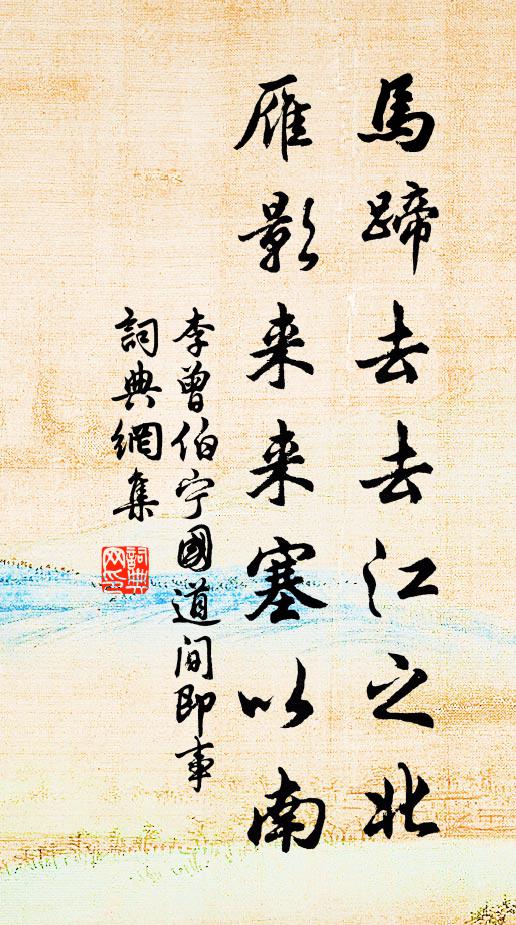 馬蹄去去江之北
雁影来来塞以南
李曾伯宁國道间即事
詞典網集
詞典
网印